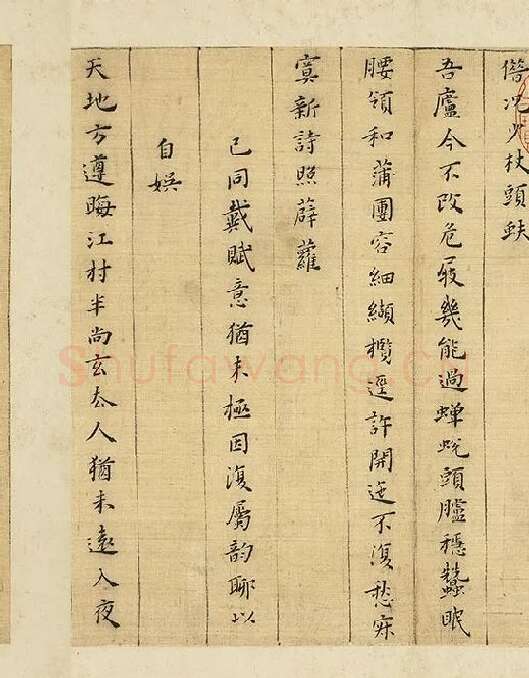 况少杖頭蚨
吾廬今不改危屐幾能過蟬蛻頭臚穩蠶眠
腰領和蒲團容細纈逕許開不復愁寂
寞新詩照薜蘿
已同戴賦意猶未極因復屬韵聊以
自娛
天地方遵晦江村半尚玄厺人猶未遠入夜
Shufawang.cn